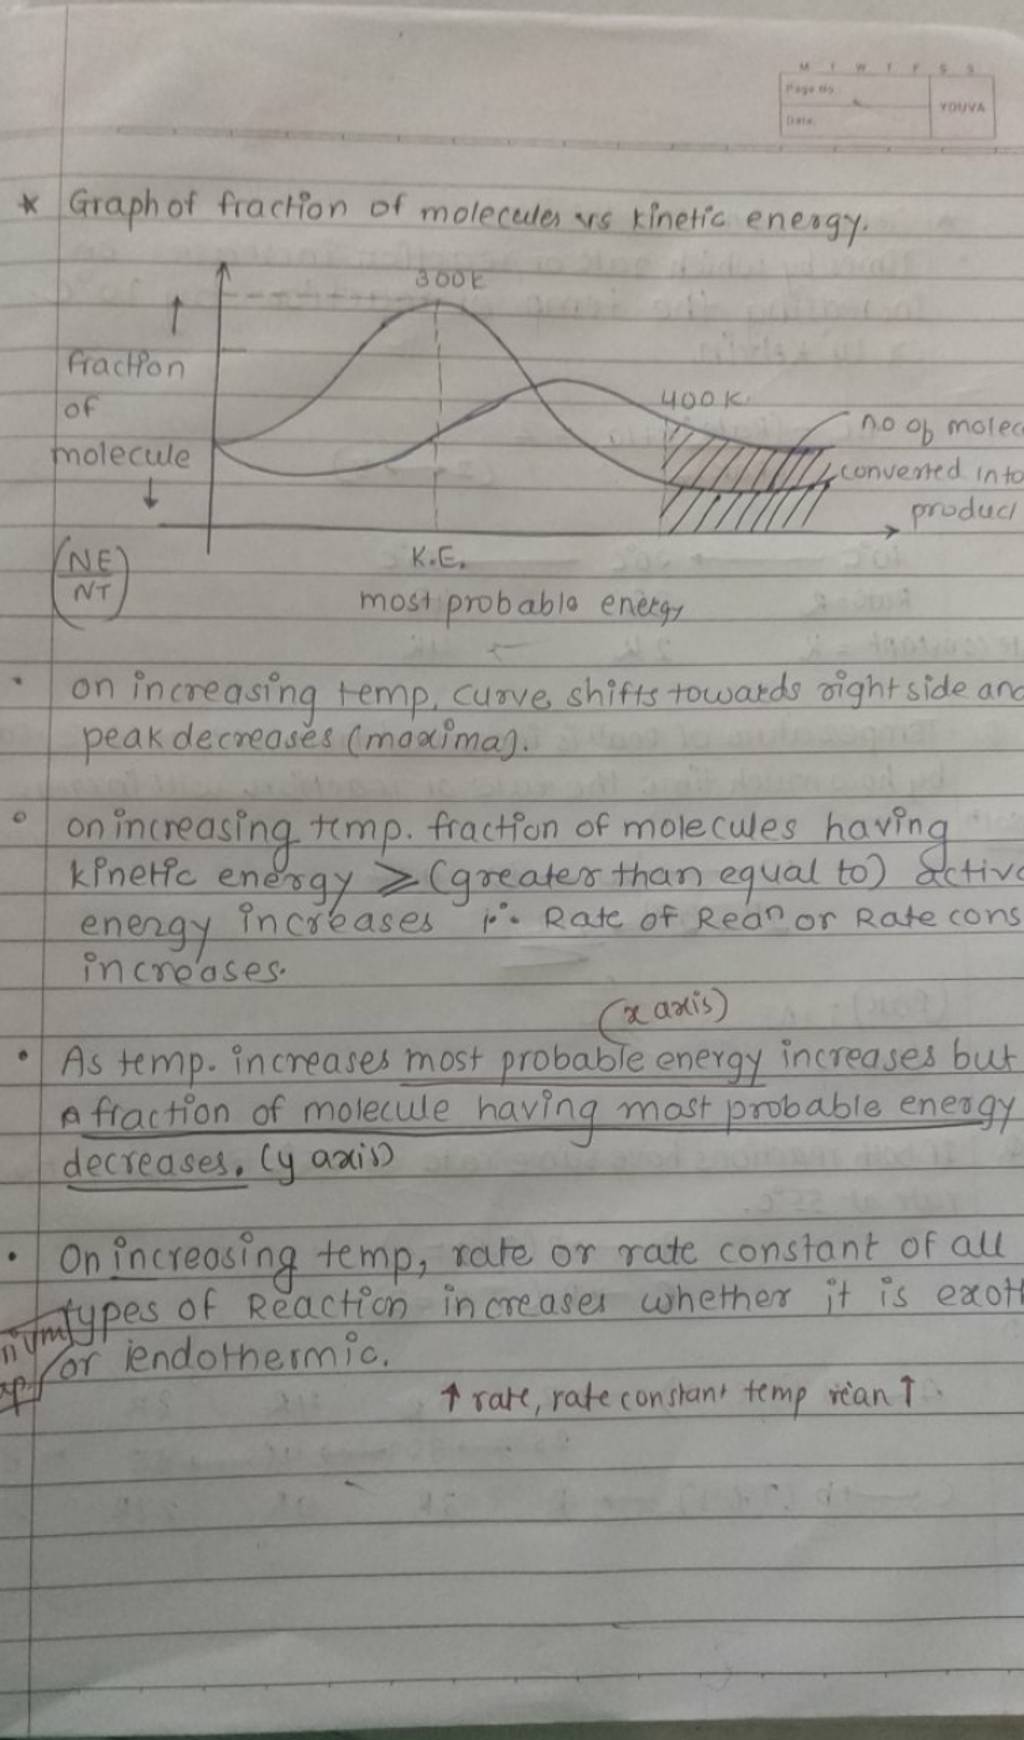 M T W T F S S
Page No.
Date
YOUVA
* Graph of fraction of molecules vs kinetic energy.
300K
↑
fraction
of
molecule
↓
400K.
no of molec
converted into
product
(NE/NT)
K.E.
most probable energy
• on increasing temp. curve shifts towards right side and
peak decreases (maxima).
• on increasing temp. fraction of molecules having
kinetic energy ≥ (greater than equal to) active
energy increases ∴ Rate of Rean or Rate cons
increases.
(x axis)
• As temp. increases most probable energy increases but
fraction of molecule having most probable energy
decreases. (y axis)
• On increasing temp, rate or rate constant of all
types of Reaction increases whether it is exoth
or endothermic.
↑ rate, rate constant temp rean ↑